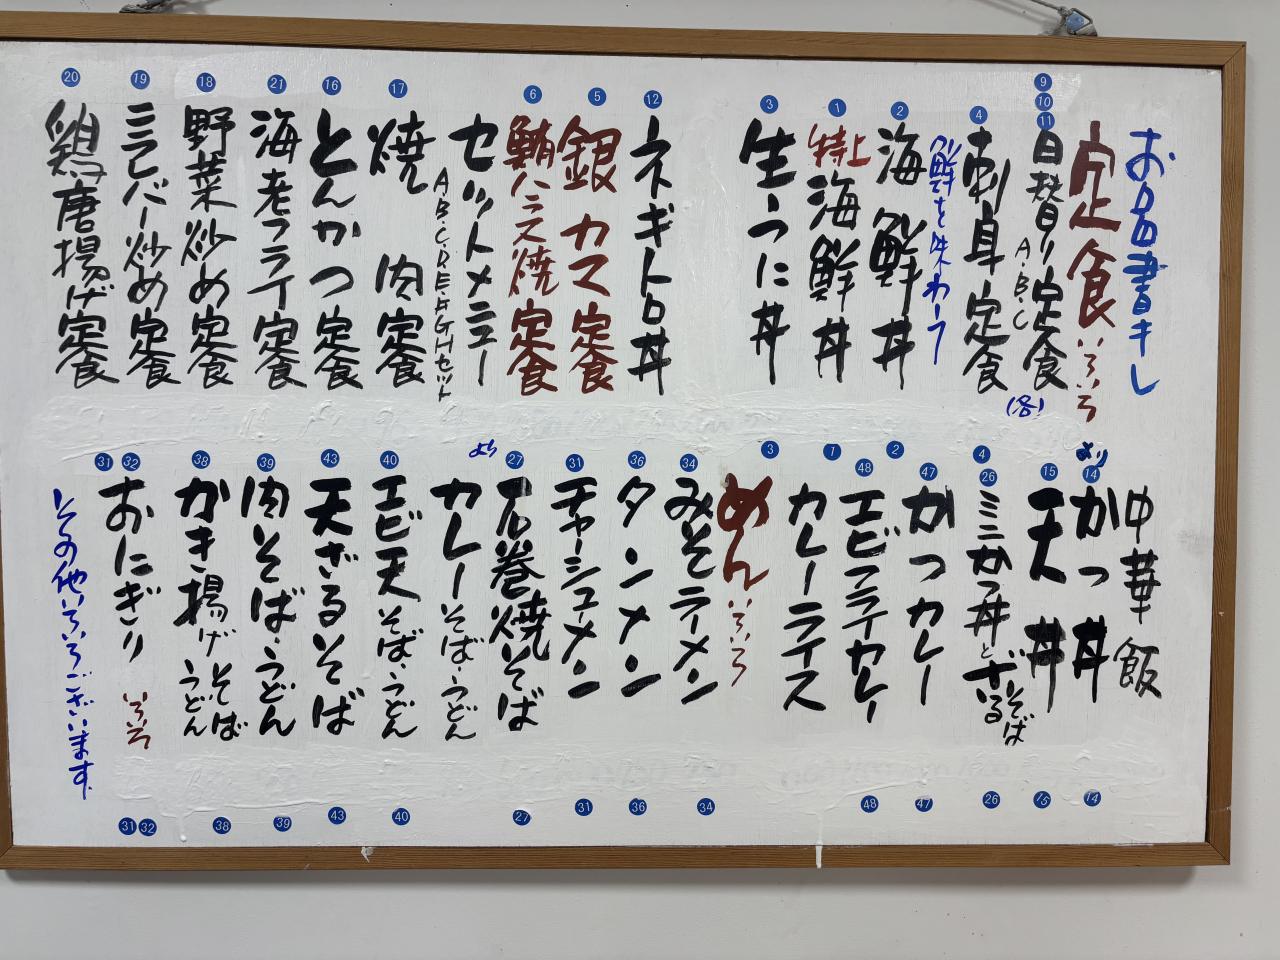 お品書キし
定食いろいろ
9 10 11
日替り定食(各)
A・B・C
4
刺身定食
鮮を味わーう
2
海鮮丼
1
特上海鮮丼
3
生うに丼
12
ネギトロ丼
5
銀カマ定食
6
鮪ハラス焼定食
セットメニュー
A・B・C・D・E・F・G・Hセット
17
焼肉定食
16
とんかつ定食
21
海老フライ定食
18
野菜炒め定食
19
ニラレバー炒め定食
20
鶏唐揚げ定食
中華飯
より
14
かつ丼
14
15
天丼
15
4
26
ミニかつ丼とざるそば
26
47
かつカレー
47
2
48
エビフライカレー
48
1
カレーライス
3
めんいろいろ
34
みそラーメン
34
36
タンメン
36
31
チャーシューメン
31
27
石巻焼そば
27
より
カレーそば・うどん
40
エビ天そば・うどん
40
43
天ざるそば
43
39
肉そば・うどん
39
38
かき揚げそば うどん
38
31 32
おにぎり いろいろ
31 32
その他いろいろございます。